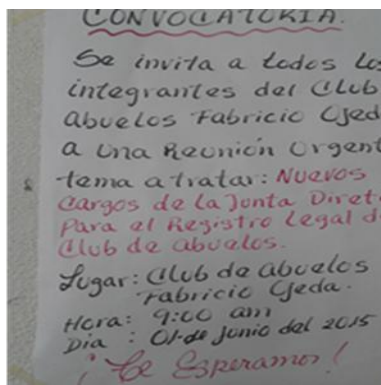 CONVOCATORIA.
Se invita a todos Los
integrantes del Club
Abuelos Fabricio Ojed
a una Reunión Urgent
tema a tratar: Nuevos
Cargos de la Junta Diret
Para el Registro Legal d
Club de abuelos.
Lugar: Club de abuelos
Fabricio Ojeda.
Hora: 9:00 am
Dia: 01-de junio del 2015
¡Te Esperamos!